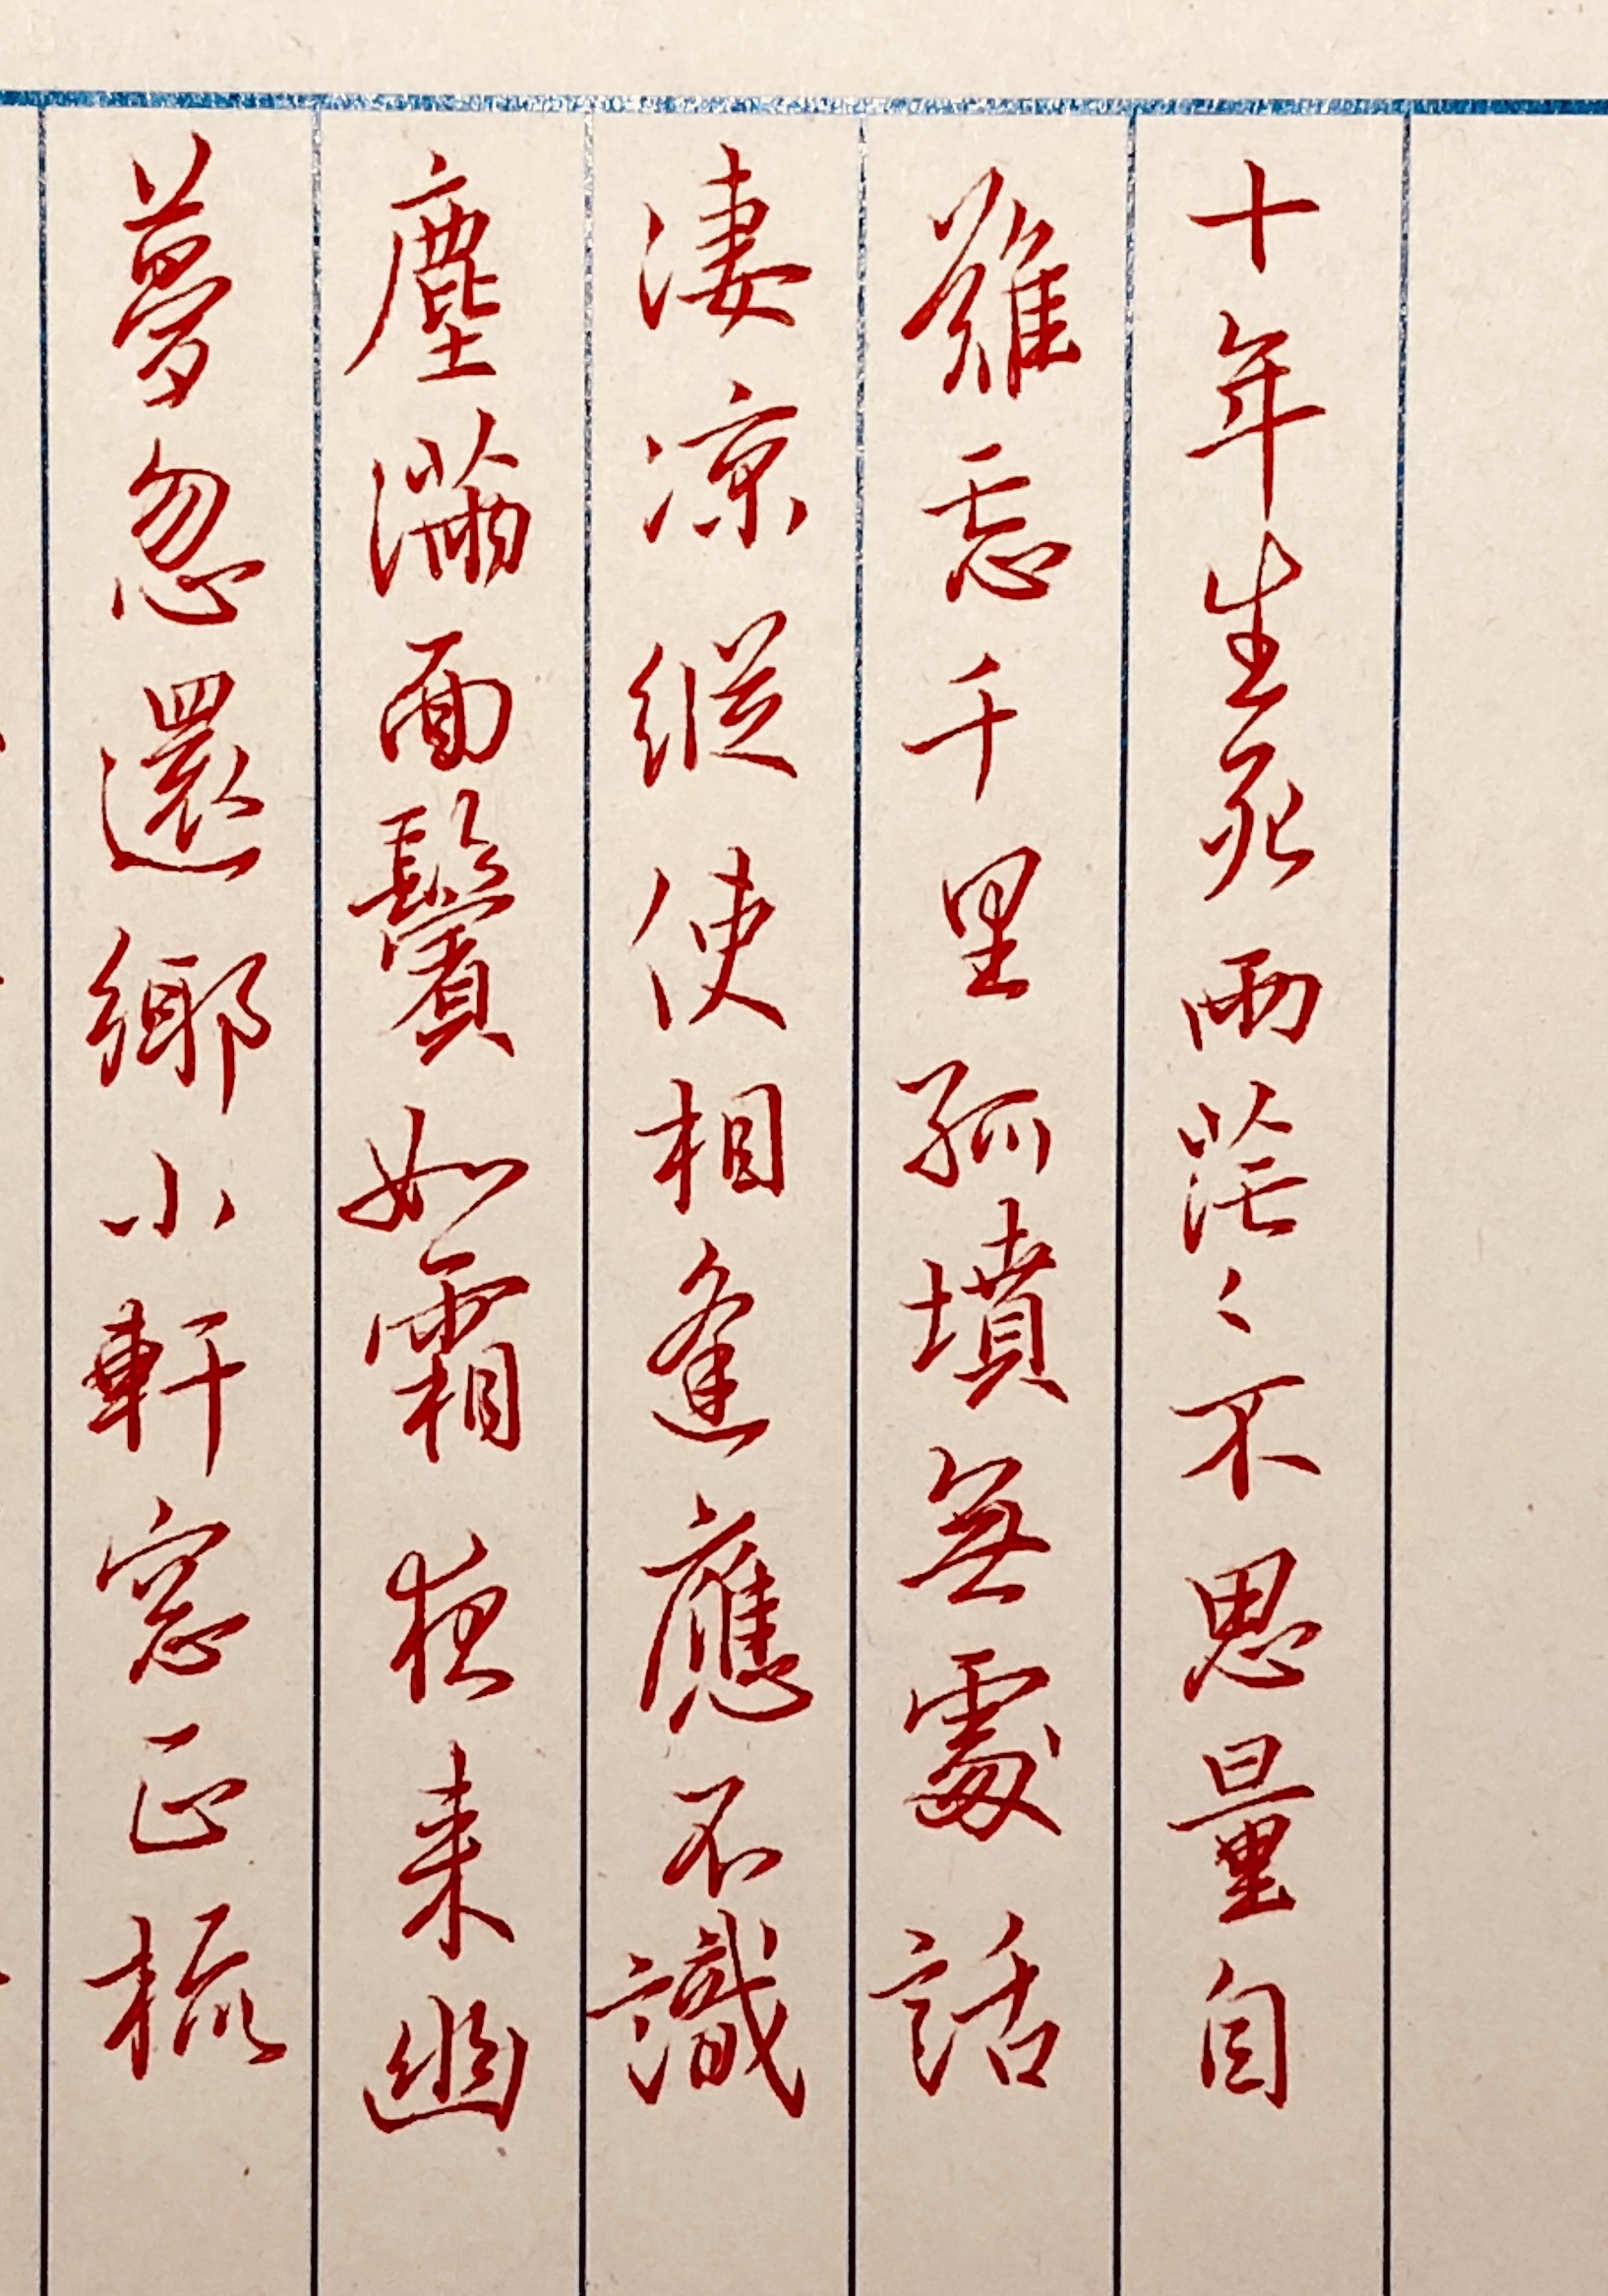 十年生死兩茫々不思量自
難忘千里孤墳無處話
淒涼縱使相逢應不識
塵滿面鬢如霜夜來幽
夢忽還鄉小軒窓正梳